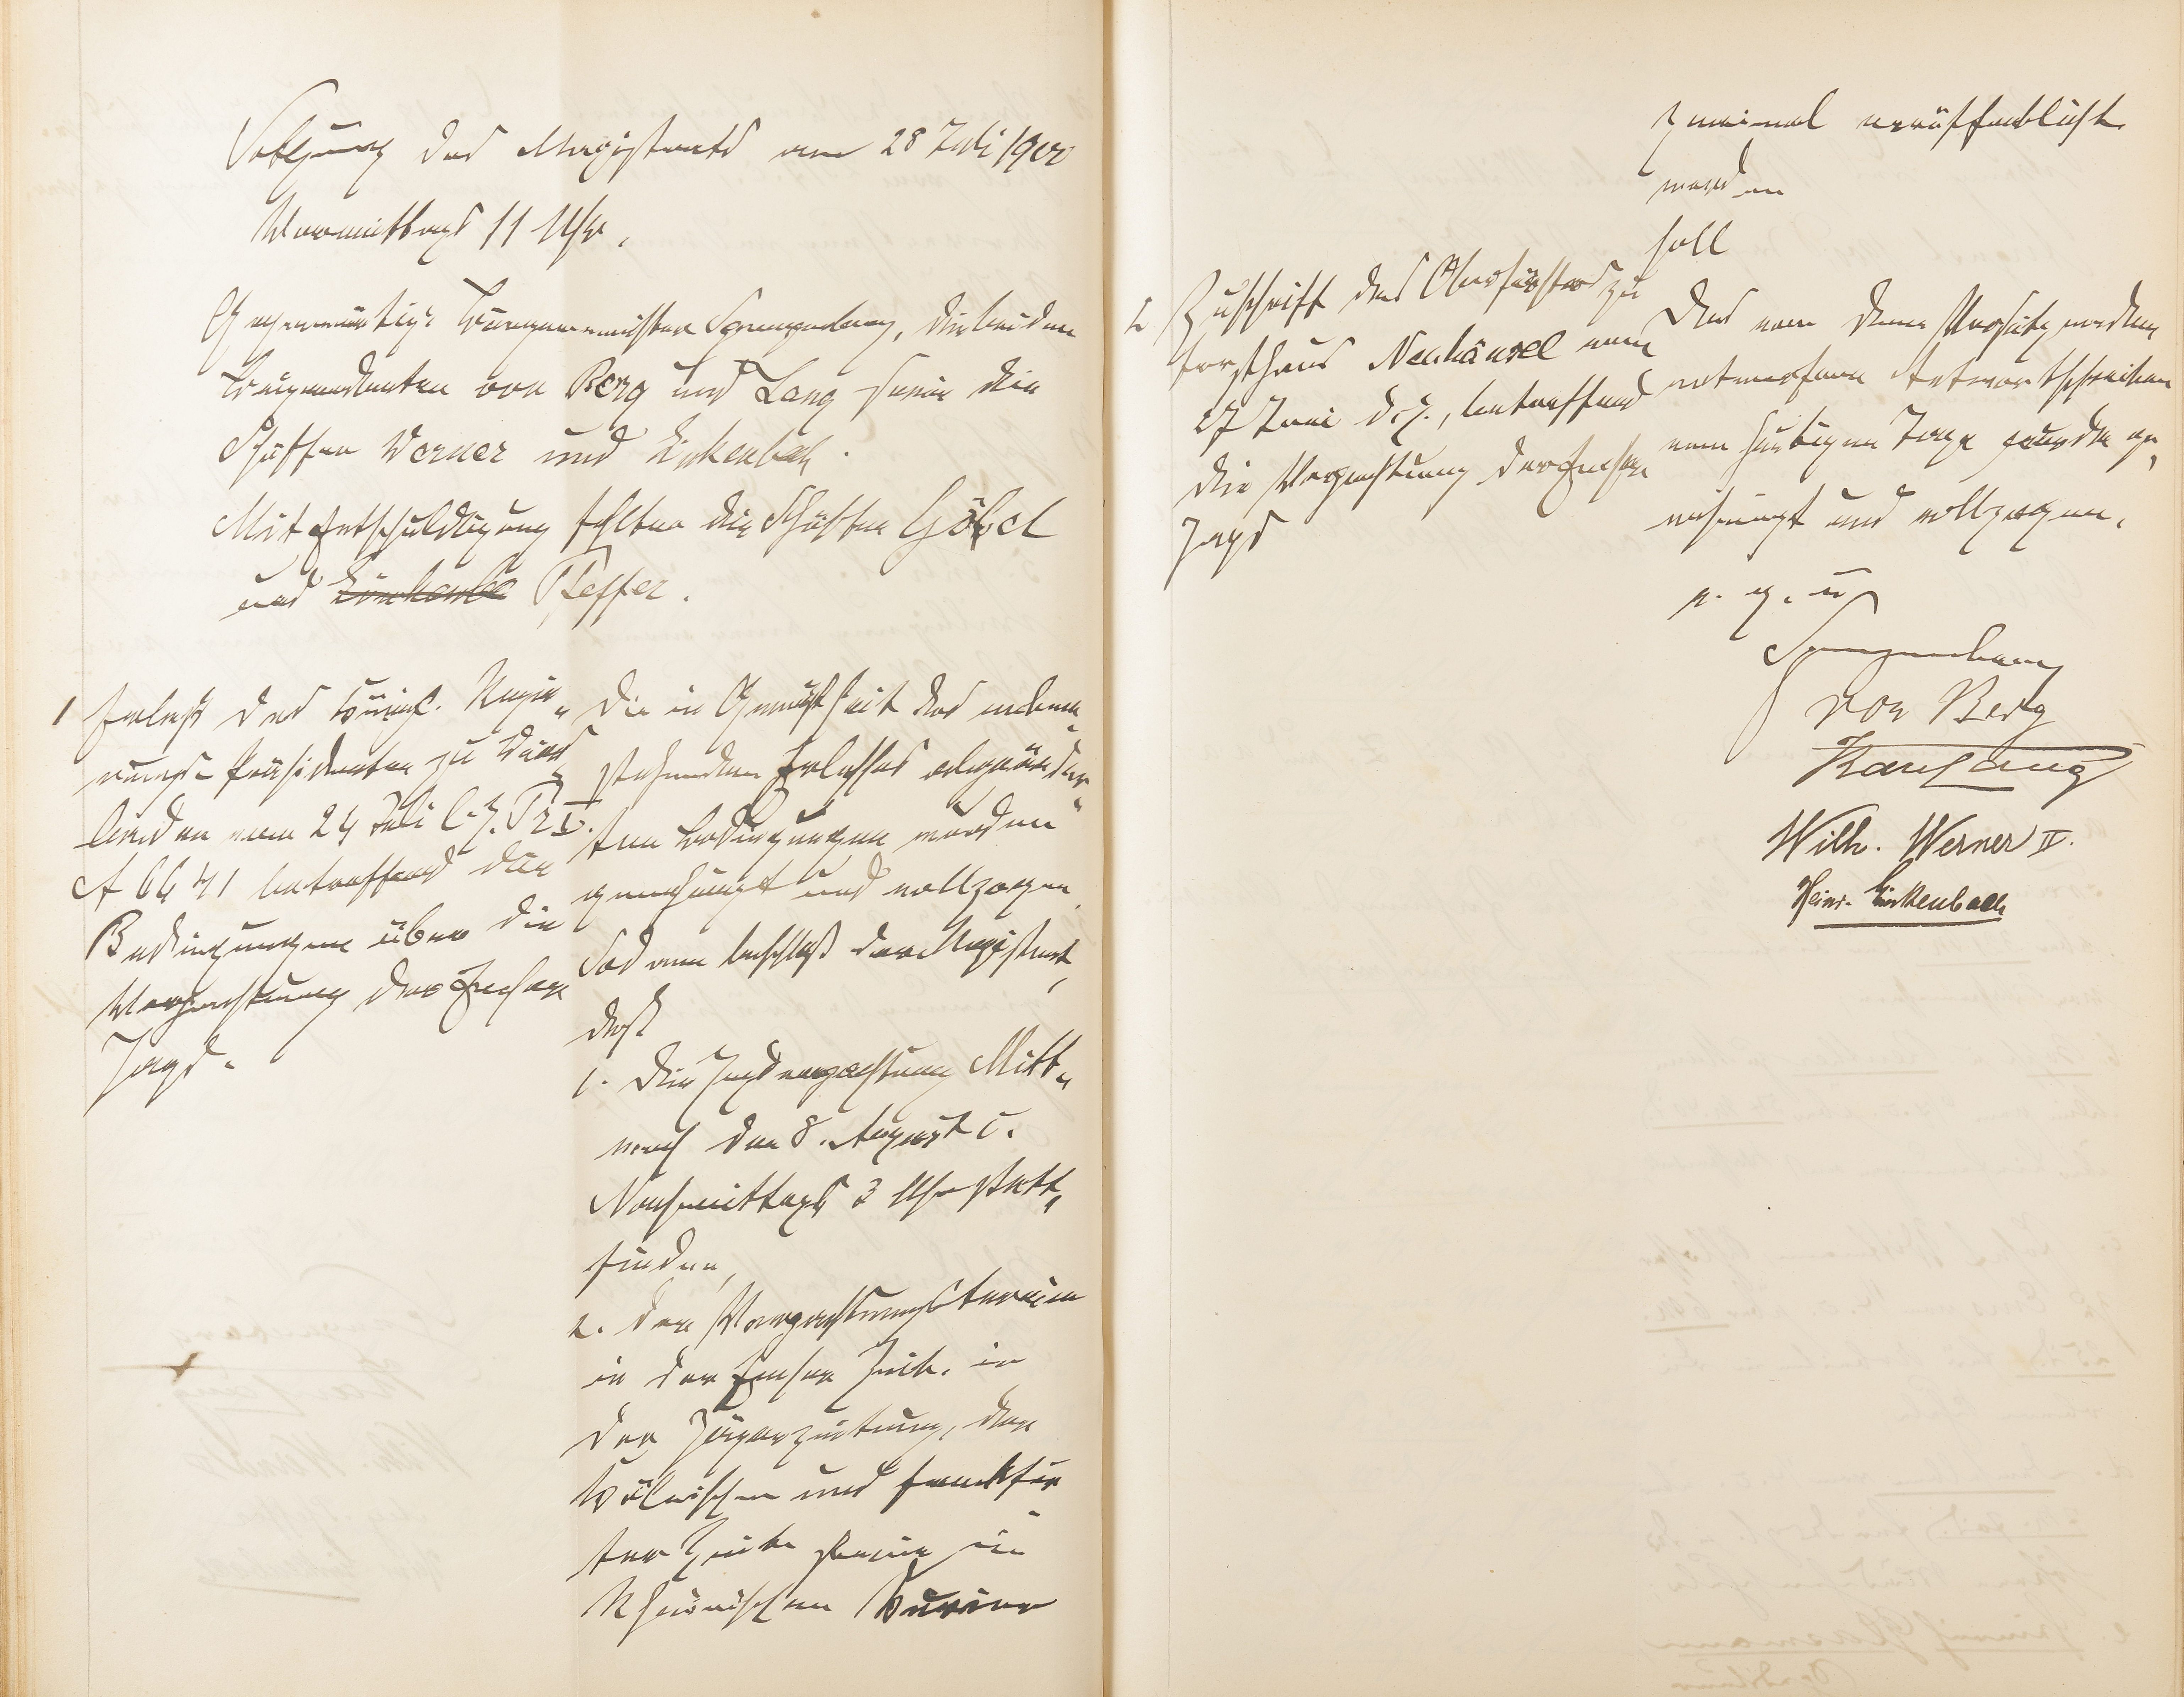 Sitzung des Magistrats am 28 Juli 1900
Vormittags 11 Uhr.
Gegenwärtig: Bürgermeister Spangenberg, die beiden
Beigeordneten von Berg und Lang sowie die
Schöffen Werner und Linkenbach.
Mit Entschuldigung fehlten die Schöffen Göbel
und Linkenba Pfeffer.
1 Erlaß des Königl. Regie„
rungs-Präsidenten zu Wies„
baden vom 24 Juli l. J. Pr I.
A 6641 betreffend die
Bedingungen über die
Verpachtung der Emser
Jagd.
Die in Gemäßheit des neben„
stehenden Erlasses abgeänder„
ten Bedingungen wurden
genehmigt und vollzogen.
Sodann beschloß der Magistrat,
daß
1. die Jagdverpachtung Mitt„
woch den 8. August c.
Nachmittags 3 Uhr statt„
finden,
2. der Verpachtungstermin
in der Emser Zeit. in
der Jägerzeitung, der
Kölnischen und Frankfur
ter Zeit. sowie im
Rheinischen Kurier
zweimal veröffentlicht
werden
soll
2 Zuschrift des Oberförsters zu
Forsthaus Neuhäusel vom
27 Juni d. J., betreffend
die Verpachtung der Emser
Jagd
Das von dem Vorsitzenden
entworfene Antwortschreiben
vom heutigen Tage wurde ge„
nehmigt und vollzogen.
v. g. u
Spangenberg
von Berg
Karl Lang
Wilh. Werner II.
Heinr. Linkenbach